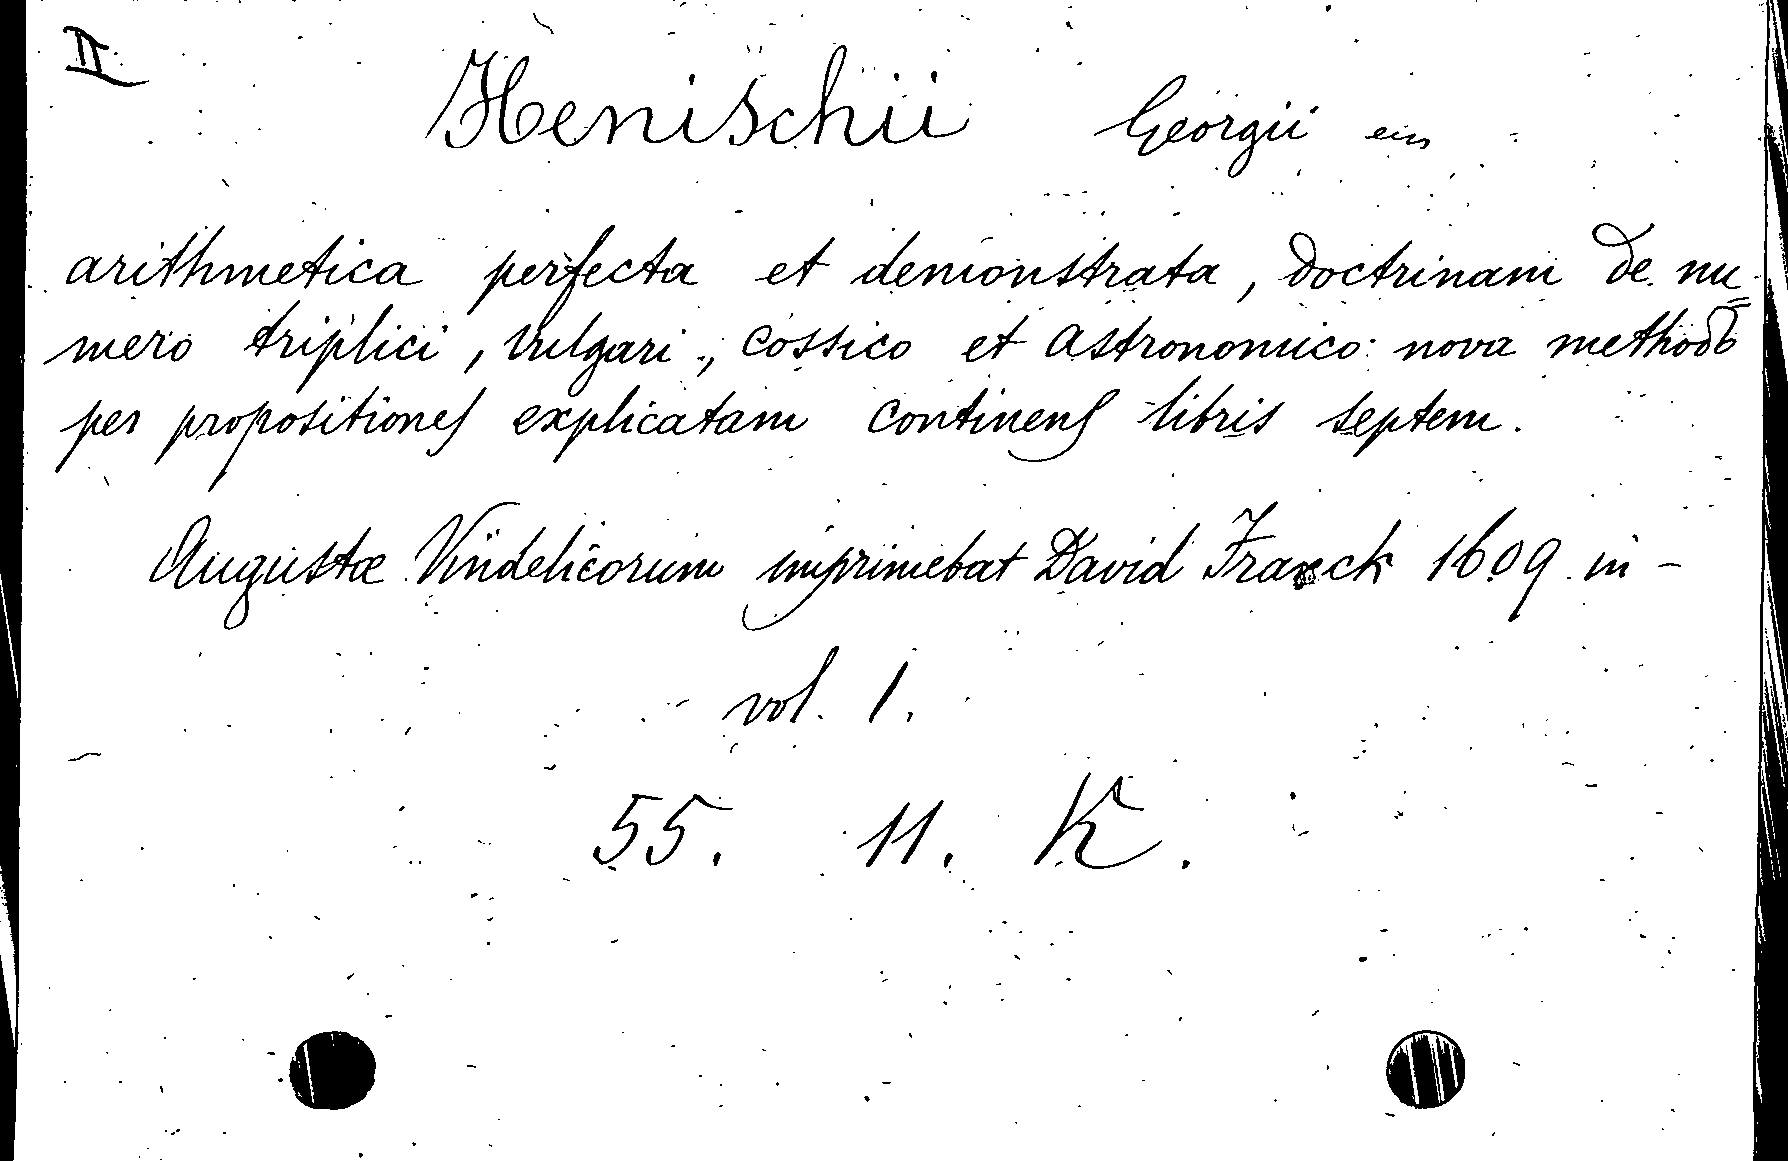 II
Henischii Georgii
arithmetica perfecta et demonstrata, doctrinam de nu=
mero triplici, vulgari, cossico et astronomico: nova methodo
per propositiones explicatam continens libris septem.
Augustæ Vindelicorum imprimebat David Franck 1609 in -
vol. 1.
55. 11. K.